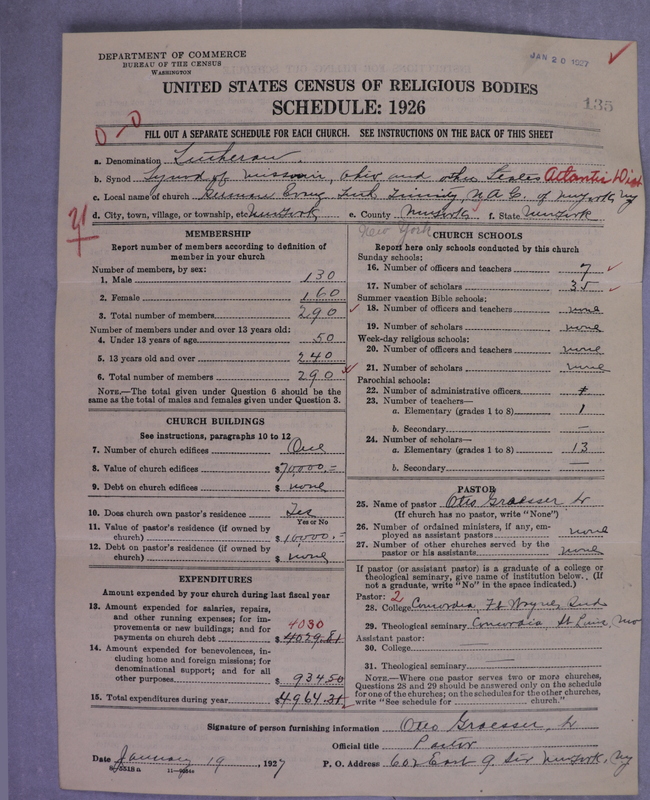 DEPARTMENT OF COMMERCE
BUREAU OF THE CENSUS
WASHINGTON
JAN 20 1927
UNITED STATES CENSUS OF RELIGIOUS BODIES
SCHEDULE: 1926
135
0-0
FILL OUT A SEPARATE SCHEDULE FOR EACH CHURCH. SEE INSTRUCTIONS ON THE BACK OF THIS SHEET
a. Denomination Lutheran.
b. Synod Synod of Missouri, Ohio and other States Atlantic Dist
c. Local name of church German Evang Luth Trinity, U.A.C. of New York Ny
d. City, town, village, or township, etc New York e. County New York f. State New York
New York
MEMBERSHIP
Report number of members according to definition of member in your church
Number of members, by sex:
1. Male 130
2. Female 160
3. Total number of members 290
Number of members under and over 13 years old:
4. Under 13 years of age 50
5. 13 years old and over 240
6. Total number of members 290
NOTE.—The total given under Question 6 should be same as the total of males and females given under Question 3.
CHURCH BUILDINGS
See instructions, paragraphs 10 to 12
7. Number of church edifices One
8. Value of church edifices $70,000.=
9. Debt on church edifices $ none
10. Does church own pastor's residence? Yes
Yes or No
11. Value of pastor's residence (if owned by church) $10,000.=
12. Debt on pastor's residence (if owned by church) $ none
EXPENDITURES
Amount expended by your church during last fiscal year
13. Amount expended for salaries, repairs,
and other running expenses; for im-
provements or new buildings; and for 4030
payments on church debt $4029.81
14. Amount expended for benevolences, in-
cluding home and foreign missions; for
denominational support; and for all
other purposes $ 934.50
15. Total expenditures during year $4964.31
CHURCH SCHOOLS
Report here only schools conducted by this church
Sunday schools:
16. Number of officers and teachers 7
17. Number of scholars 35
Summer vacation Bible schools:
18. Number of officers and teachers none
19. Number of scholars none
Week-day religious schools:
20. Number of officers and teachers none
21. Number of scholars none
Parochial schools:
22. Number of administrative officers
23. Number of teachers—
a. Elementary (grades 1 to 8) 1
b. Secondary —
24. Number of scholars—
a. Elementary (grades 1 to 8) 13
b. Secondary —
PASTOR
25. Name of pastor Otto Graesser Sr
(If church has no pastor, write "None")
26. Number of ordained ministers, if any, em-
ployed as assistant pastors none
27. Number of other churches served by the
pastor or his assistants none
If pastor (or assistant pastor) is a graduate of a college or
theological seminary, give name of institution below. (If
not a graduate, write "No" in the space indicated.)
Pastor: 2
28. College Concordia, Ft Wayne, Ind
29. Theological seminary Concordia, St Louis, Mo
Assistant pastor:
30. College
31. Theological seminary
NOTE.—Where one pastor serves two or more churches,
Questions 28 and 29 should be answered only on the schedule
for one of the churches; on the schedules for the other churches,
write "See schedule for church."
Signature of person furnishing information Otto Graesser, Sr
Official title Pastor
Date January 19, 1927 P. O. Address 602 East 9. Str New York, Ny